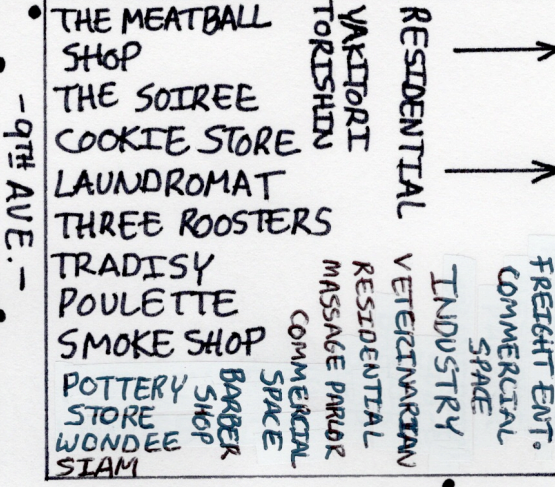 THE MEATBALL
SHOP
THE SOIREE
COOKIE STORE
LAUNDROMAT
THREE ROOSTERS
TRADISY
POULETTE
SMOKE SHOP
POTTERY
STORE
WONDEE
SIAM
-9TH AVE.-
YAKITORI
TORISHIN
RESIDENTIAL
BARBER
SHOP
COMMERCIAL
SPACE
MASSAGE PARLOR
RESIDENTIAL
VETEZINARIAN
INDUSTRY
COMMERCIAL
SPACE
FREIGHT ENT.